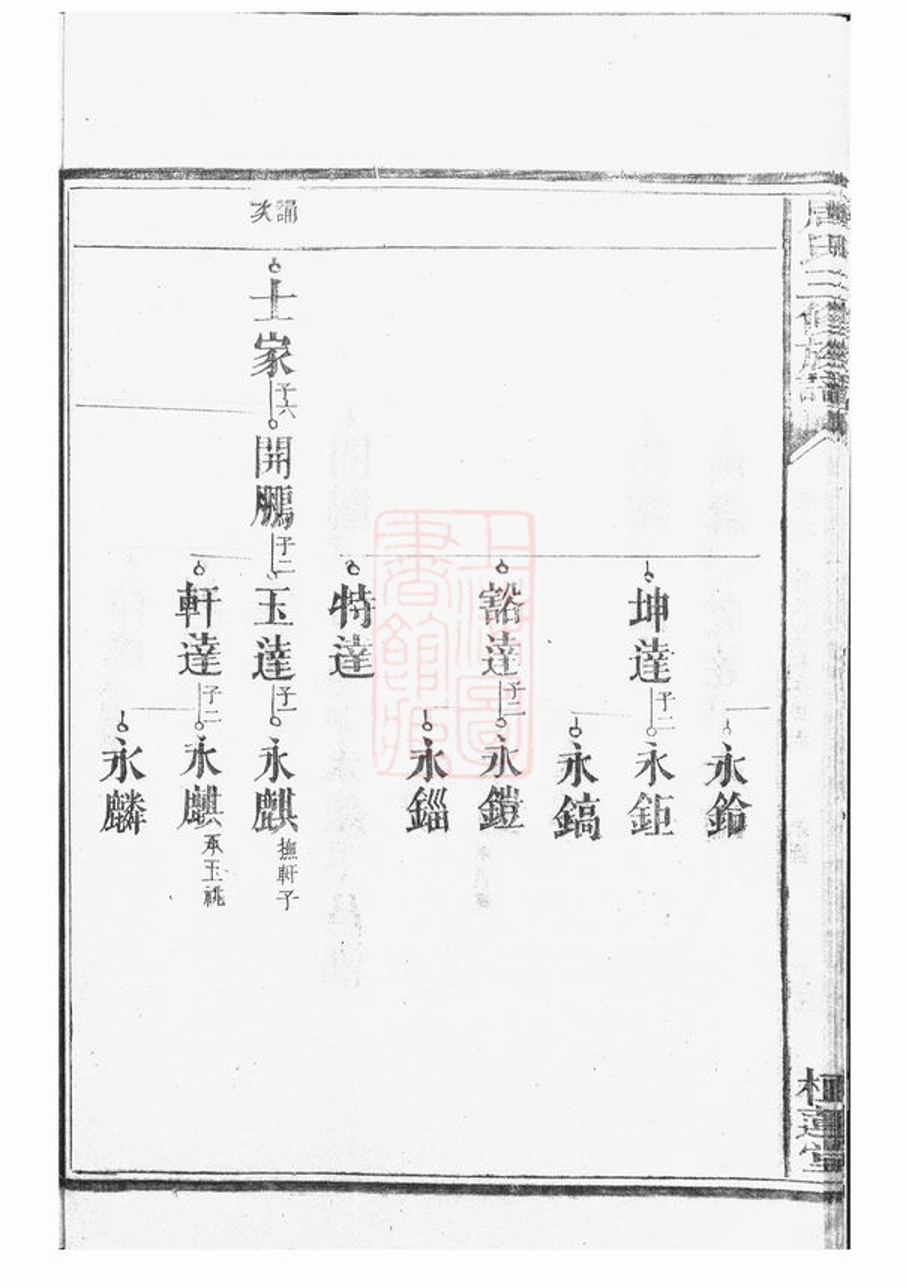 唐氏三修族譜
桓蓮堂
永鈴
坤達 子二 永鉅
永鎬
豁達 子二 永鎧
永錙
特達
誦
次
士家 子六 開鵬 子二 玉達 子一 永麒 撫軒子
軒達 子二 永麒 承玉祧
永麟
上海圖書館藏